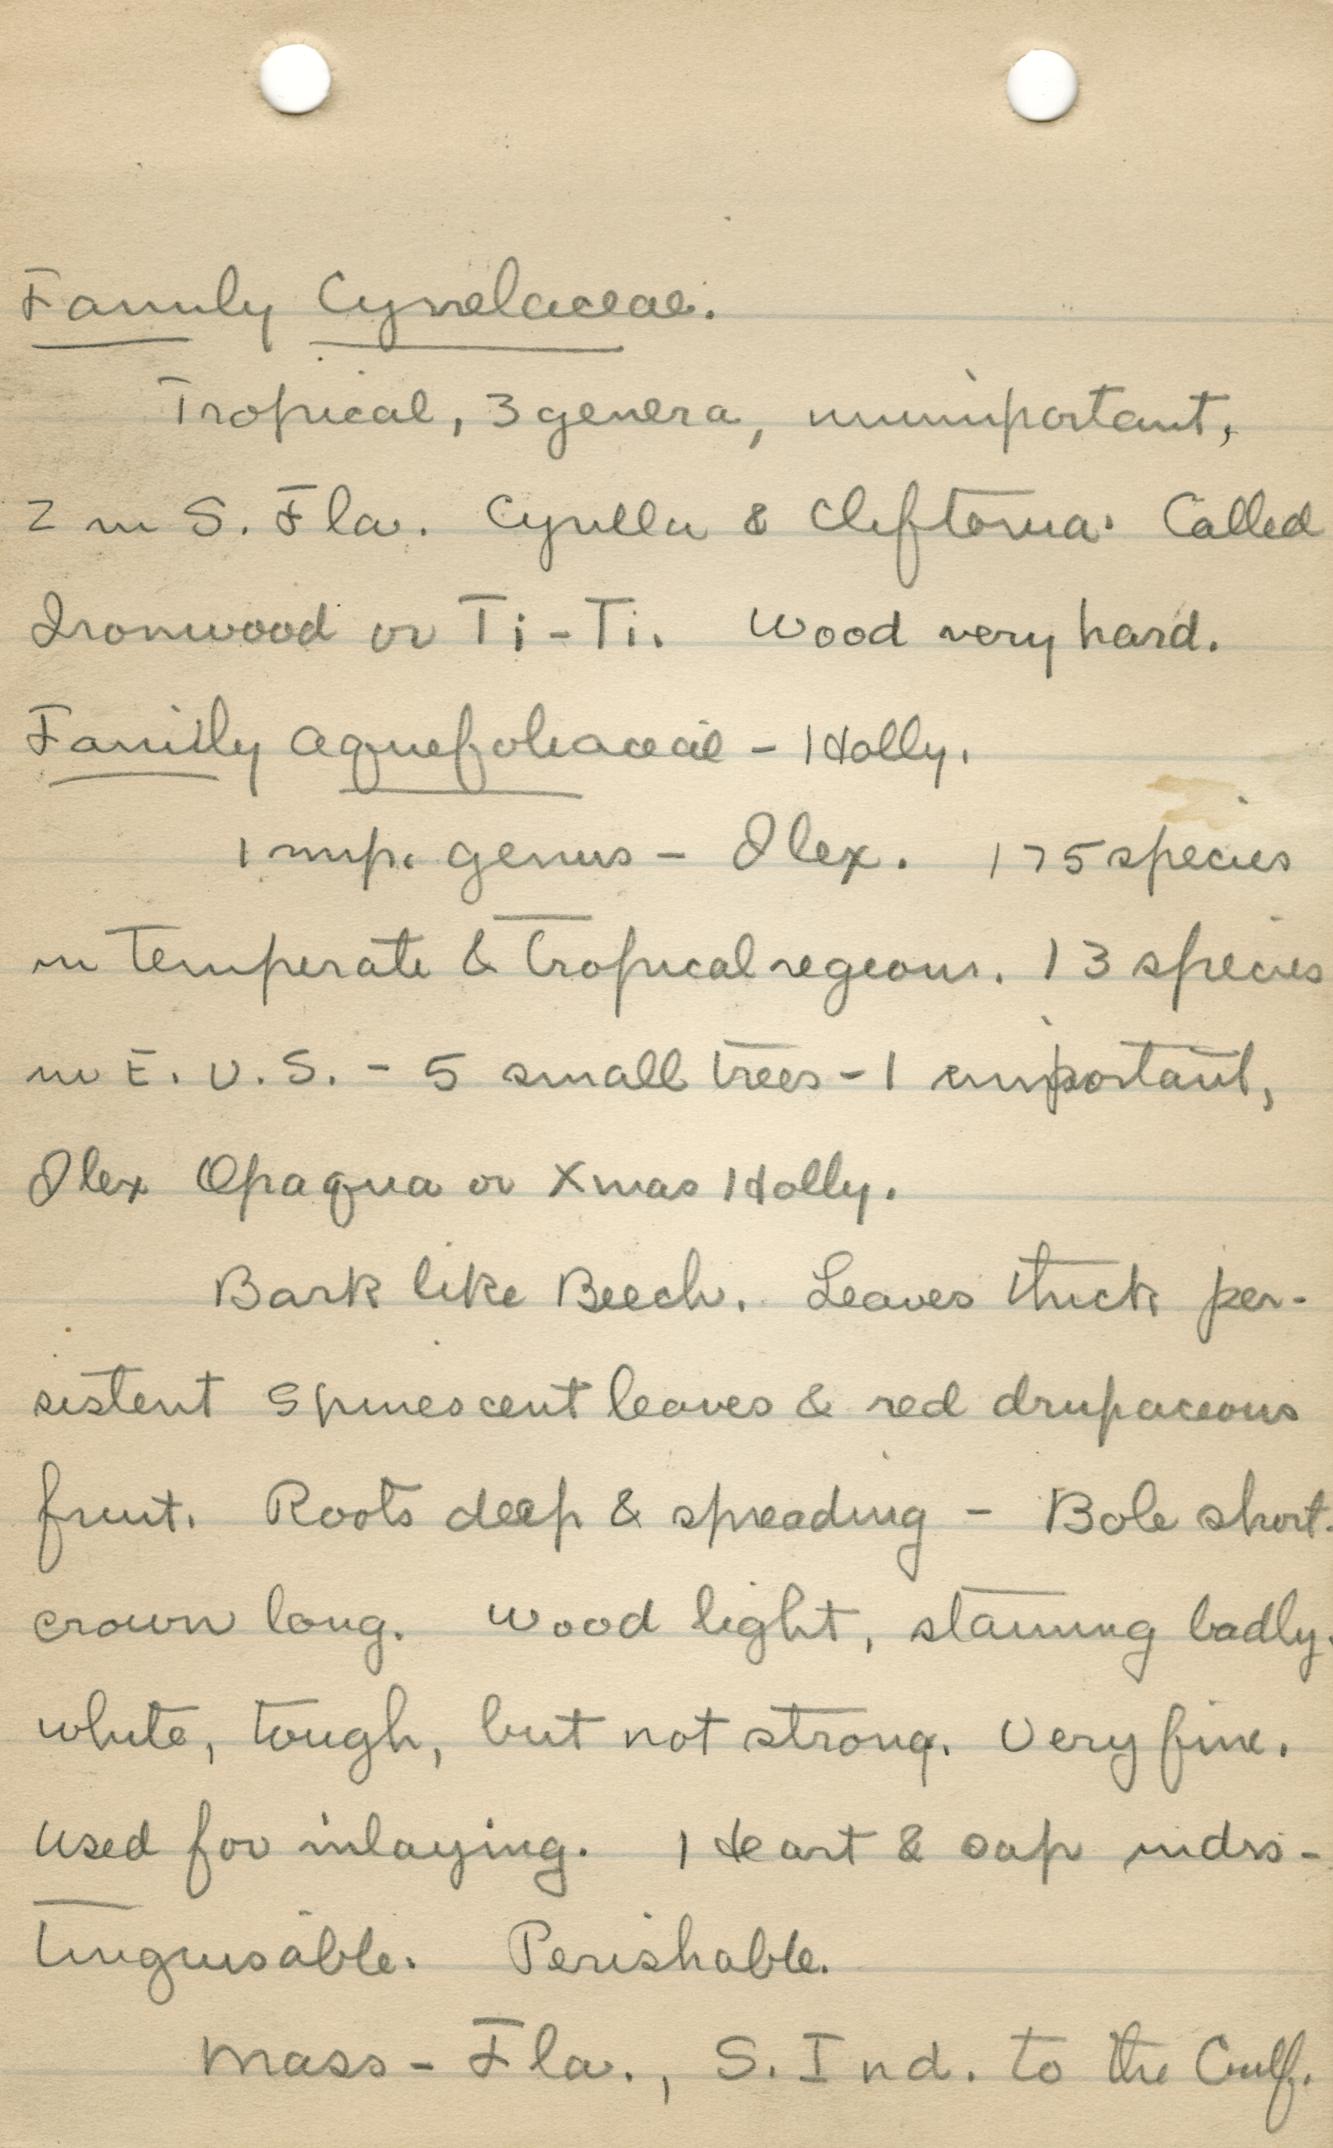 Family Cyrelaceae.
Tropical, 3 genera, unimportant,
2 in S. Fla. Cyrilla & Cliftonia. Called
Ironwood or Ti-Ti. Wood very hard.
Family Aquefoliaceae - Holly.
1 imp. genus - Ilex. 175 species
in Temperate & Tropical regions. 13 species
in E. U.S. - 5 small trees - 1 important,
Ilex Opaqua or Xmas Holly.
Bark like Beech. Leaves thick per-
sistent spinescent leaves & red drupaceous
fruit. Roots deep & spreading - Bole short.
crown long. Wood light, staining badly.
white, tough, but not strong. Very fine.
Used for inlaying. Heart & sap indis-
tinguisable. Perishable.
Mass - Fla., S. Ind. to the Gulf.